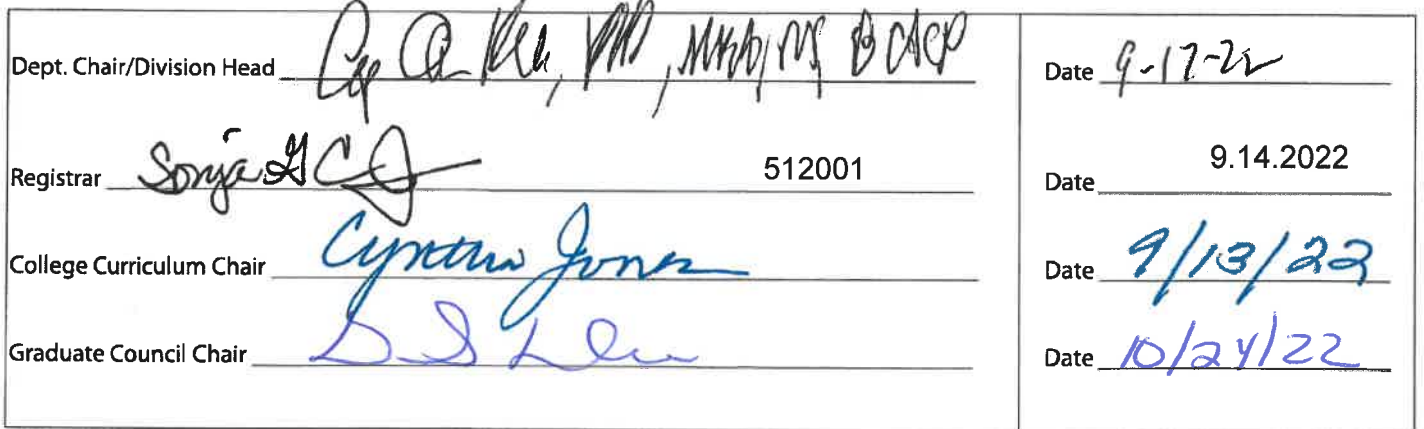 Dept. Chair/Division Head BCACP Date 9-17-22
Registrar Sonja 512001 Date 9.14.2022
College Curriculum Chair Cynthia Jones Date 9/13/22
Graduate Council Chair Date 10/24/22